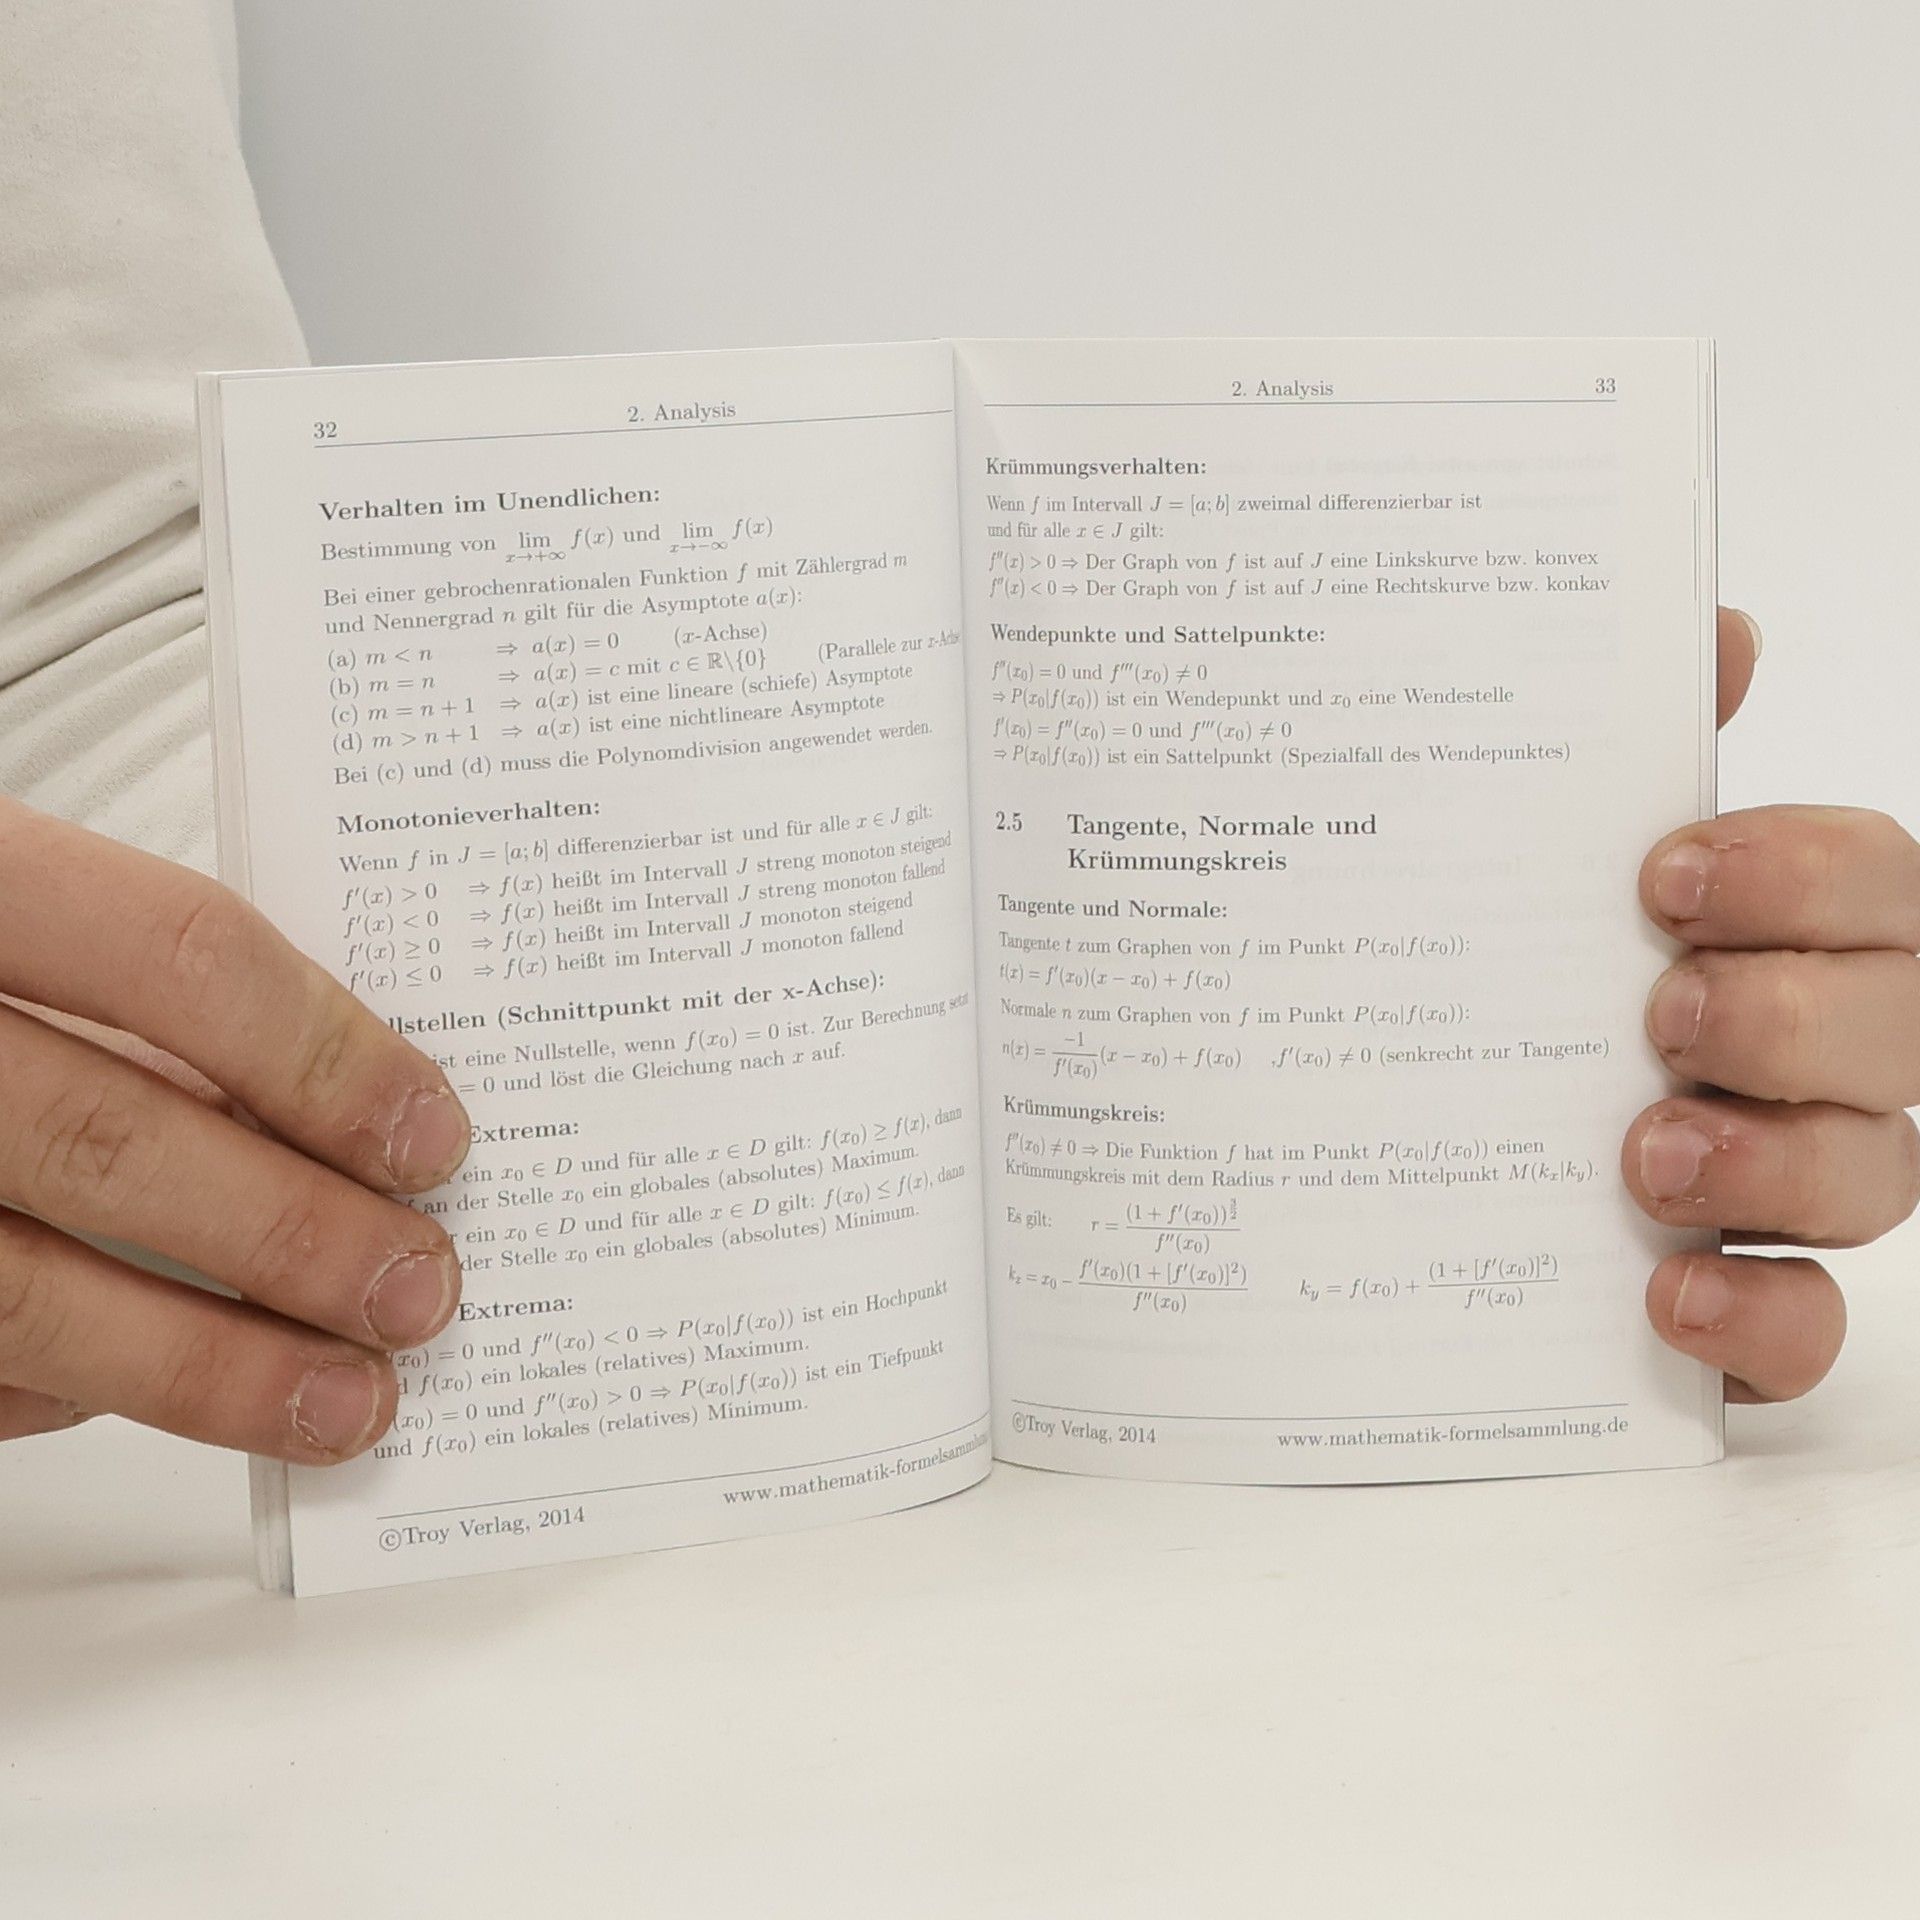 32
2. Analysis
Verhalten im Unendlichen:
Bestimmung von lim x→+∞ f(x) und lim x→−∞ f(x)
Bei einer gebrochenrationalen Funktion f mit Zählergrad m
und Nennergrad n gilt für die Asymptote a(x):
(a) m < n ⇒ a(x) = 0 (x-Achse)
(b) m = n ⇒ a(x) = c mit c ∈ ℝ\{0} (Parallele zur x-Achse
(c) m = n + 1 ⇒ a(x) ist eine lineare (schiefe) Asymptote
(d) m > n + 1 ⇒ a(x) ist eine nichtlineare Asymptote
Bei (c) und (d) muss die Polynomdivision angewendet werden.
Monotonieverhalten:
Wenn f in J = [a; b] differenzierbar ist und für alle x ∈ J gilt:
f′(x) > 0 ⇒ f(x) heißt im Intervall J streng monoton steigend
f′(x) < 0 ⇒ f(x) heißt im Intervall J streng monoton fallend
f′(x) ≥ 0 ⇒ f(x) heißt im Intervall J monoton steigend
f′(x) ≤ 0 ⇒ f(x) heißt im Intervall J monoton fallend
llstellen (Schnittpunkt mit der x-Achse):
ist eine Nullstelle, wenn f(x₀) = 0 ist. Zur Berechnung setzt
= 0 und löst die Gleichung nach x auf.
Extrema:
ein x₀ ∈ D und für alle x ∈ D gilt: f(x₀) ≥ f(x), dann
an der Stelle x₀ ein globales (absolutes) Maximum.
ein x₀ ∈ D und für alle x ∈ D gilt: f(x₀) ≤ f(x), dann
der Stelle x₀ ein globales (absolutes) Minimum.
Extrema:
(x₀) = 0 und f″(x₀) < 0 ⇒ P(x₀|f(x₀)) ist ein Hochpunkt
f(x₀) ein lokales (relatives) Maximum.
(x₀) = 0 und f″(x₀) > 0 ⇒ P(x₀|f(x₀)) ist ein Tiefpunkt
und f(x₀) ein lokales (relatives) Minimum.
©Troy Verlag, 2014
www.mathematik-formelsammlung
2. Analysis
33
Krümmungsverhalten:
Wenn f im Intervall J = [a; b] zweimal differenzierbar ist
und für alle x ∈ J gilt:
f″(x) > 0 ⇒ Der Graph von f ist auf J eine Linkskurve bzw. konvex
f″(x) < 0 ⇒ Der Graph von f ist auf J eine Rechtskurve bzw. konkav
Wendepunkte und Sattelpunkte:
f″(x₀) = 0 und f‴(x₀) ≠ 0
⇒ P(x₀|f(x₀)) ist ein Wendepunkt und x₀ eine Wendestelle
f′(x₀) = f″(x₀) = 0 und f‴(x₀) ≠ 0
⇒ P(x₀|f(x₀)) ist ein Sattelpunkt (Spezialfall des Wendepunktes)
2.5 Tangente, Normale und
Krümmungskreis
Tangente und Normale:
Tangente t zum Graphen von f im Punkt P(x₀|f(x₀)):
t(x) = f′(x₀)(x − x₀) + f(x₀)
Normale n zum Graphen von f im Punkt P(x₀|f(x₀)):
n(x) = −1/f′(x₀) (x − x₀) + f(x₀) ,f′(x₀) ≠ 0 (senkrecht zur Tangente)
Krümmungskreis:
f″(x₀) ≠ 0 ⇒ Die Funktion f hat im Punkt P(x₀|f(x₀)) einen
Krümmungskreis mit dem Radius r und dem Mittelpunkt M(kₓ|k_y).
Es gilt: r = (1 + f′(x₀))^(3/2) / f″(x₀)
kₓ = x₀ − f′(x₀)(1 + [f′(x₀)]²) / f″(x₀) k_y = f(x₀) + (1 + [f′(x₀)]²) / f″(x₀)
©Troy Verlag, 2014
www.mathematik-formelsammlung.de